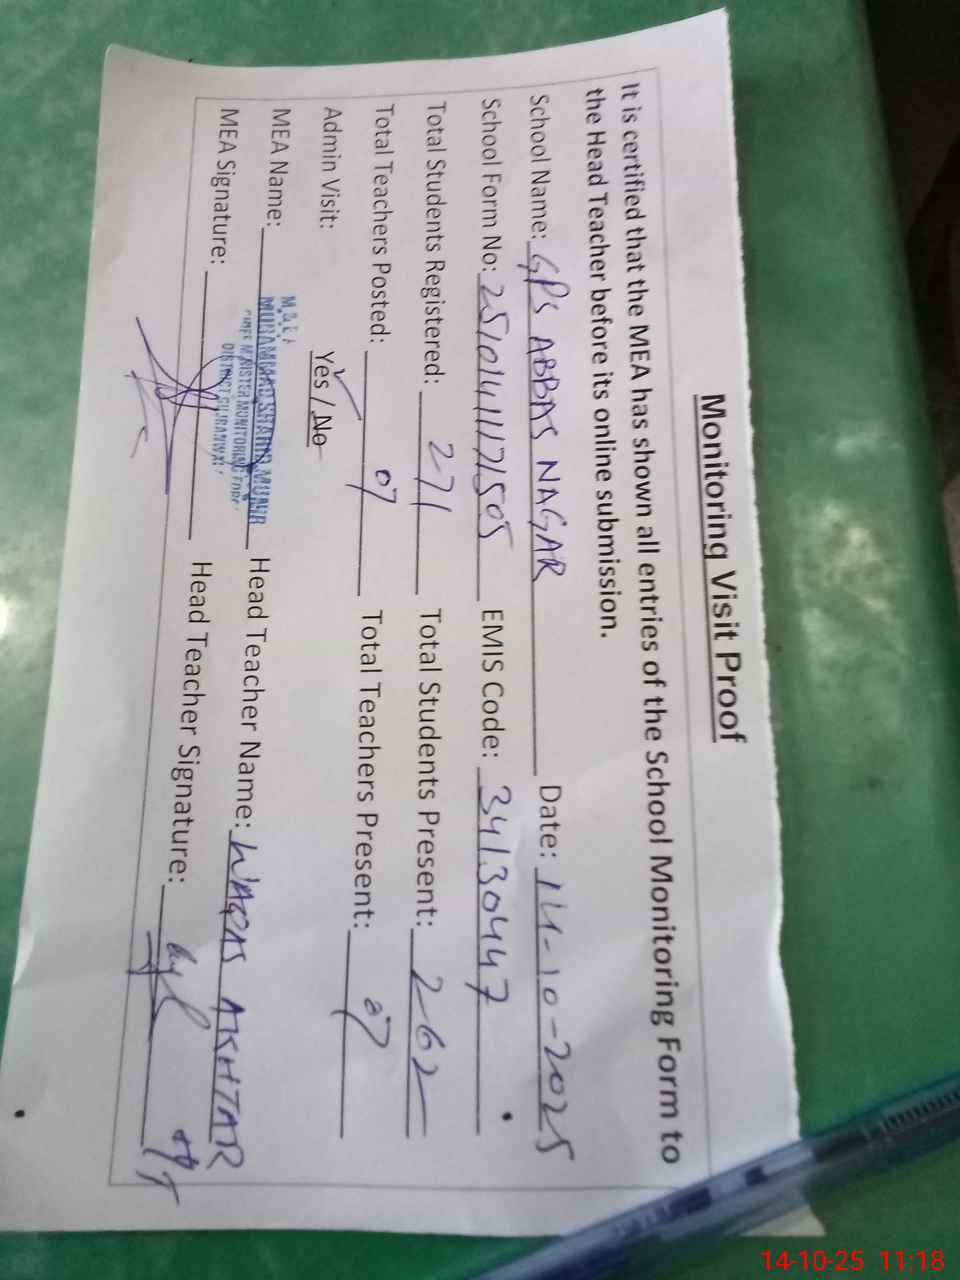 Monitoring Visit Proof
It is certified that the MEA has shown all entries of the School Monitoring Form to
the Head Teacher before its online submission.
School Name: GPS ABBAS NAGAR Date: 14-10-2025
School Form No: 25101411171505 EMIS Code: 34130447
Total Students Registered: 271 Total Students Present: 262
Total Teachers Posted: 07 Total Teachers Present: 07
Admin Visit: Yes / No
M.& E.A
MEA Name: MUHAMMAD SHAHID MUNIR Head Teacher Name: WAQAS AKHTAR
CHIEF MINISTER MONITORING FORCE
DISTRICT GUJRANWALA
MEA Signature: Head Teacher Signature:
14-10-25 11:18